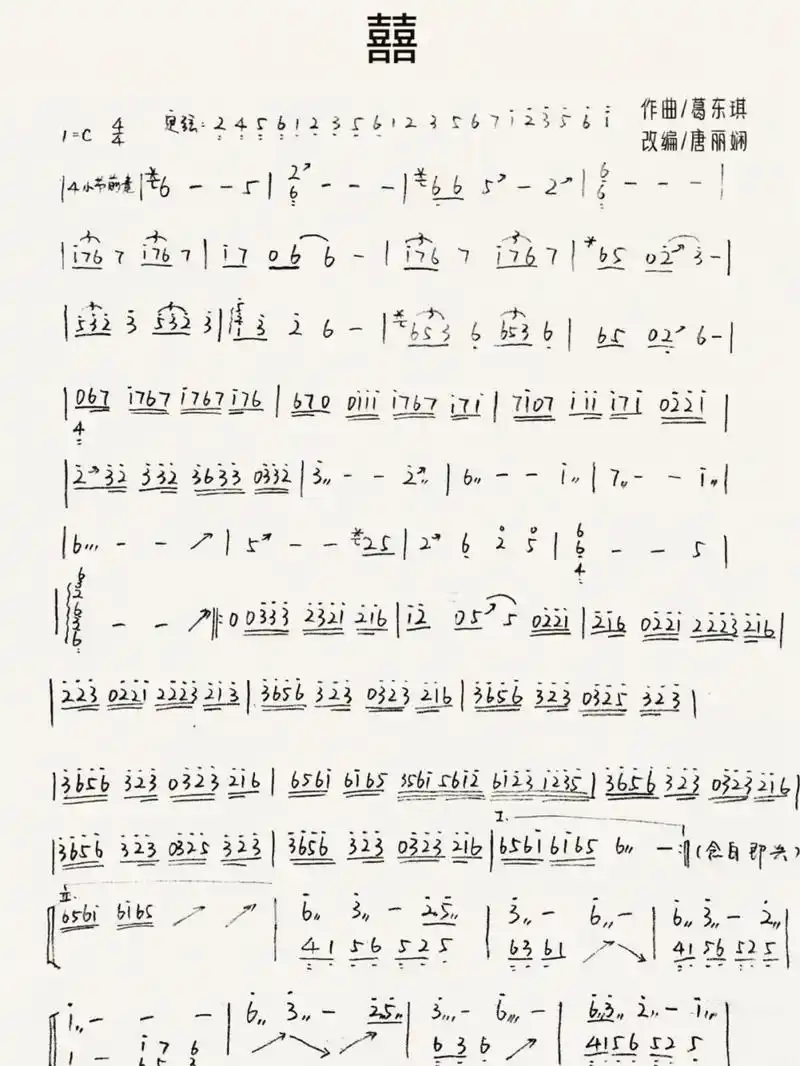 囍
作曲/葛东琪
改编/唐丽娴
1=C 4/4 定弦: 2 4 5 6 1 2 3 5 6 1 2 3 5 6 7 i 2 3 5 6 i
|4小节前奏| 6 - - 5 | 2 6 - - - | 6 6 5 - 2 | 6 6 - - - |
| i76 7 i76 7 | i7 06 6 - | i76 7 i76 7 | 65 02 3 - |
| 532 3 532 3 | 3 2 6 - | 653 6 653 6 | 65 02 6 - |
| 067 i767 i767 i76 | 670 0iii i767 i7i | 7i07 iii i7i 022i |
4
| 2 32 332 3633 0332 | 3 - - 2 | 6 - - i | 7 - - i |
| 6 - - | 5 - - 25 | 2 6 2 5 | 6 6 4 - - 5 |
| - - ‖: 0 0333 2321 216 | i2 05 5 022i | 2i6 022i 2223 2i6 |
| 223 022i 2223 2i3 | 3656 323 0323 2i6 | 3656 323 0325 323 |
| 3656 323 0323 2i6 | 656i 6i65 356i 56i2 6i23 i235 | 3656 323 0323 2i6 |
I.
| 3656 323 0325 323 | 3656 323 0323 2i6 | 656i 6i65 6 - :‖ (念白即兴)
II.
656i 6i65 | 6 3 - 25 | 3 - 6 - | 6 3 - 2 |
41 56 52 5 | 63 61 | 41 56 52 5 |
i - - - | 6 3 - 25 | 3 - 6 - | 63 2 - i |
1 - i 7 6 | 6 3 6 | 4156 52 5